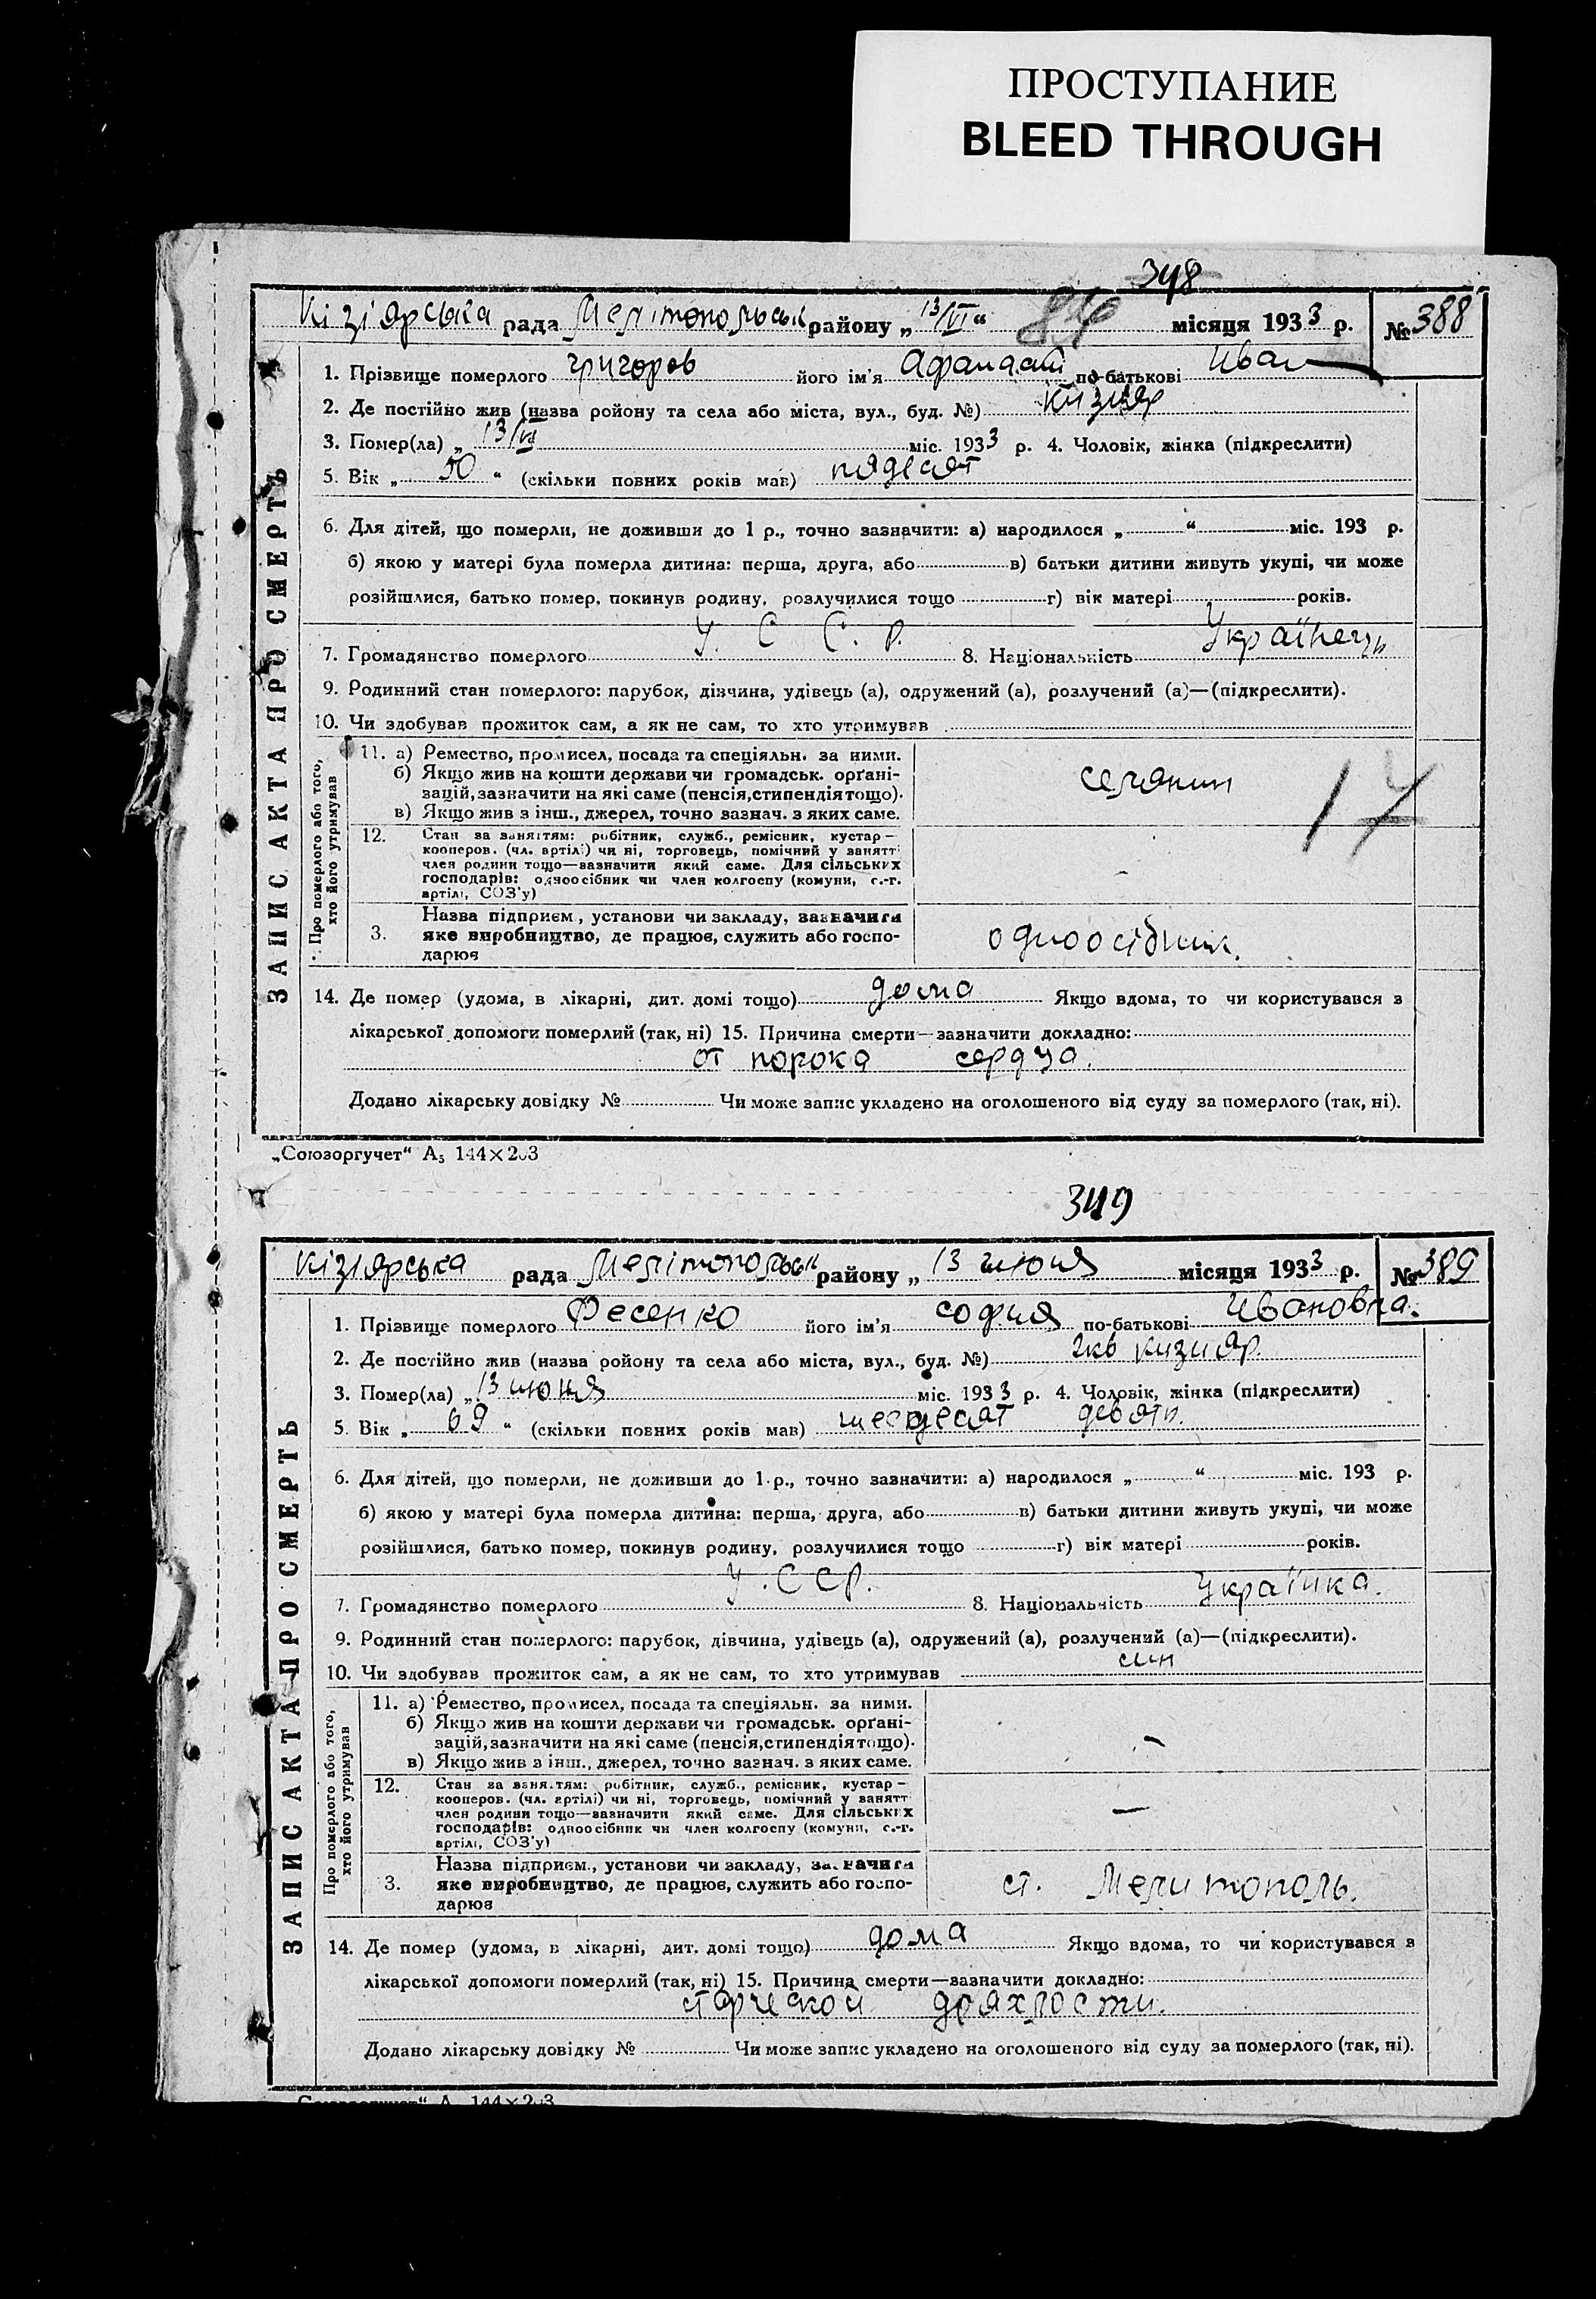 ПРОСТУПАНИЕ
BLEED THROUGH
348
Кізіярська рада Мелітопольськ района „13/VI“ місяця 1933 р. № 388
1. Прізвище померлого Григоров його ім'я Афанасій по-батькові Иван
2. Де постійно жив (назва ройону та села або міста, вул., буд. №) Кизияр
3. Помер(ла) „13/VI міс. 1933 р. 4. Чоловік, жінка (підкреслити)
5. Вік „50“ (скільки повних років мав) пядесят
6. Для дітей, що померли, не доживши до 1 р., точно зазначити: а) народилося „ “ міс. 193 р.
б) якою у матері була померла дитина: перша, друга, або в) батьки дитини живуть укупі, чи може
розійшлися, батько помер, покинув родину, розлучилися тощо г) вік матері років.
7. Громадянство померлого У. С. С. Р. 8. Національність Українець
9. Родинний стан померлого: парубок, дівчина, удівець (а), одружений (а), розлучений (а)—(підкреслити).
10. Чи здобував прожиток сам, а як не сам, то хто утримував
ЗАПИС АКТА ПРО СМЕРТЬ
Про померлого або того, хто його утримував
11. а) Ремество, промисел, посада та спеціяльн. за ними.
б) Якщо жив на кошти держави чи громадськ. орґані-
зацій, зазначити на які саме (пенсія, стипендія тощо).
в) Якщо жив з інш., джерел, точно зазнач. з яких саме.
селянин
17
12. Стан за заняттям: робітник, служб., ремісник, кустар—
кооперов. (чл. артілі) чи ні, торговець, помічний у занятт
член родини тощо—зазначити який саме. Для сільських
господарів: одноосібник чи член колгоспу (комуни, с.-г.
артілі, СОЗ'у)
–
3. Назва підприєм., установи чи закладу, зазначити
яке виробництво, де працює, служить або госпо-
дарює
одноосібник.
14. Де помер (удома, в лікарні, дит. домі тощо) дома Якщо вдома, то чи користувався з
лікарської допомоги померлий (так, ні) 15. Причина смерти—зазначити докладно:
от порока сердца.
Додано лікарську довідку № Чи може запис укладено на оголошеного від суду за померлого (так, ні).
„Союзоргучет“ А5 144×203
349
Кізіярська рада Мелітопольськ району „13 июня місяця 1933 р. № 389
1. Прізвище померлого Фесенко його ім'я София по-батькові Ивановна.
2. Де постійно жив (назва ройону та села або міста, вул., буд. №) Кизияр.
3. Помер(ла) „13 июня міс. 1933 р. 4. Чоловік, жінка (підкреслити)
5. Вік „69“ (скільки повних років мав) шесдесят девять.
6. Для дітей, що померли, не доживши до 1 р., точно зазначити: а) народилося „ “ міс. 193 р.
б) якою у матері була померла дитина: перша, друга, або в) батьки дитини живуть укупі, чи може
розійшлися, батько помер, покинув родину, розлучилися тощо г) вік матері років.
7. Громадянство померлого У.ССР. 8. Національність Українка.
9. Родинний стан померлого: парубок, дівчина, удівець (а), одружений (а), розлучений (а)—(підкреслити).
10. Чи здобував прожиток сам, а як не сам, то хто утримував син
ЗАПИС АКТА ПРО СМЕРТЬ
Про померлого або того, хто його утримував
11. а) Ремество, промисел, посада та спеціяльн. за ними.
б) Якщо жив на кошти держави чи громадськ. орґані-
зацій, зазначити на які саме (пенсія, стипендія тощо).
в) Якщо жив з інш., джерел, точно зазнач. з яких саме.
–
12. Стан за заняттям: робітник, служб., ремісник, кустар—
кооперов. (чл. артілі) чи ні, торговець, помічний у занятт
член родини тощо—зазначити який саме. Для сільських
господарів: одноосібник чи член колгоспу (комуни, с.-г.
артілі, СОЗ'у)
–
3. Назва підприєм., установи чи закладу, зазначити
яке виробництво, де працює, служить або госпо-
дарює
ст. Мелитополь.
14. Де помер (удома, в лікарні, дит. домі тощо) дома Якщо вдома, то чи користувався з
лікарської допомоги померлий (так, ні) 15. Причина смерти—зазначити докладно:
старческой дряхлости.
Додано лікарську довідку № Чи може запис укладено на оголошеного від суду за померлого (так, ні).